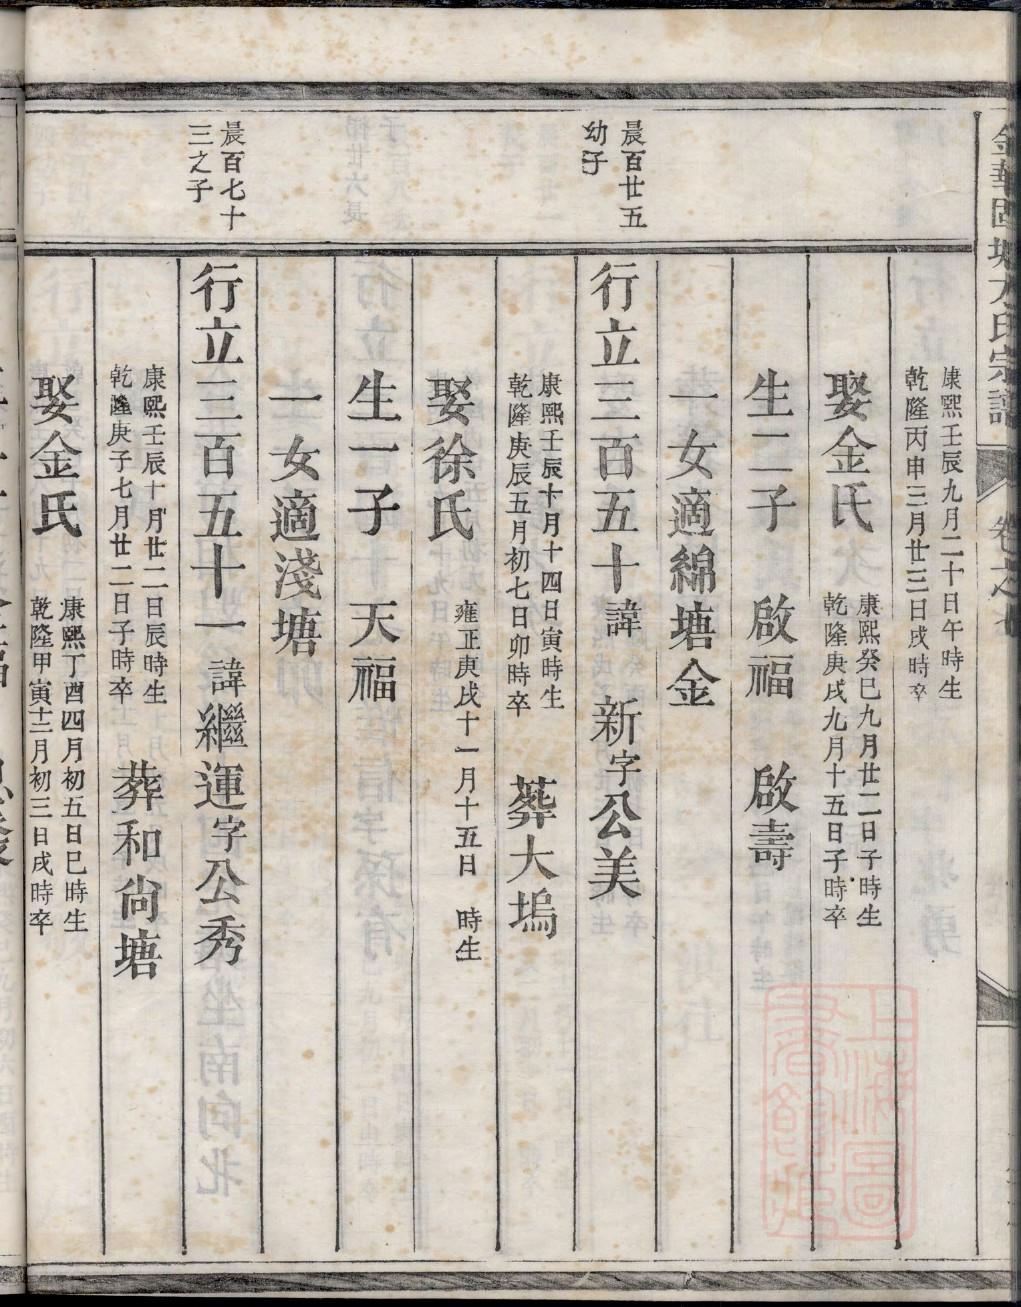 康熙壬辰九月二十日午時生
乾隆丙申三月廿三日戌時卒
娶金氏
康熙癸巳九月廿二日子時生
乾隆庚戌九月十五日子時卒
生二子 啟福 啟壽
一女適綿塘金
晨百廿五
幼子
行立三百五十諱 新字公美
康熙壬辰十月十四日寅時生
乾隆庚辰五月初七日卯時卒
葬大塢
娶徐氏
雍正庚戌十一月十五日 時生
生一子 天福
一女適淺塘
晨百七十
三之子
行立三百五十一諱繼運字公秀
康熙壬辰十月廿二日辰時生
乾隆庚子七月廿二日子時卒
葬和尙塘
娶金氏
康熙丁酉四月初五日巳時生
乾隆甲寅十二月初三日戌時卒